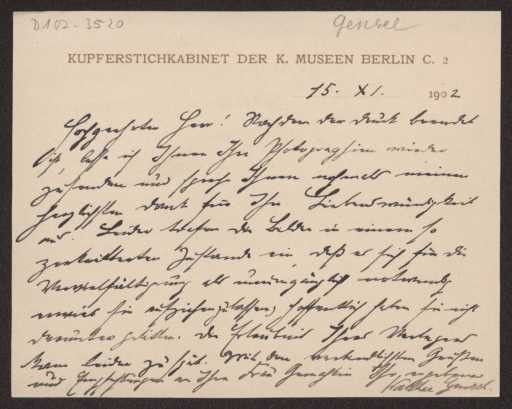 D 102-3520
Gensel
KUPFERSTICHKABINET DER K. MUSEEN BERLIN C. 2
15. XI. 1902
Hochgeehrter Herr! Nachdem der Druck beendet
ist, lasse ich Ihnen Ihre Photographien wieder
zusenden und spreche Ihnen nochmals meinen
herzlichsten Dank für Ihre Liebenswürdigkeit
aus. Leider trafen die Bilder in einem so
zerknitterten Zustande ein, daß es sich für die
Vervielfältigung als unumgänglich notwendig
erwies sie aufziehen zu lassen; hoffentlich haben sie nicht
darunter gelitten. Die Erlaubnis Ihres Verlegers
kam leider zu spät. Mit den verbindlichsten Grüßen
und Empfehlungen an Ihre Frau Gemahlin Ihr ergebener
Walther Gensel.